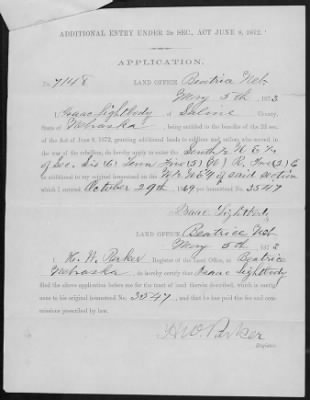 ADDITIONAL ENTRY UNDER 2D SEC., ACT JUNE 8, 1872.
APPLICATION.
No. 7148 LAND OFFICE, Beatrice Neb.
May 5th 1873
I, Isaac Lightbody of Saline County,
State of Nebraska, being entitled to the benefits of the 2d section
of the Act of June 8, 1872, granting additional lands to soldiers and sailors who served in
the war of the rebellion, do hereby apply to enter the South ½ N.E. ¼
of Sec. Six (6) Town Five (5) R. (3) E
in additional to my original homestead on the N ½ N E ¼ of said section
which I entered October 29th 1869, per homestead No. 3547
Isaac Lightbody
LAND OFFICE, Beatrice Neb
May 5th 1873
I, H. W. Parker Register of the Land Office, at Beatrice
Nebraska, do hereby certify that Isaac Lightbody
filed the above application before me for the tract of land therein described, which is contiguous
to his original homestead No. 3547, and that he has paid the fee and commissions
prescribed by law.
H. W. Parker
Register.